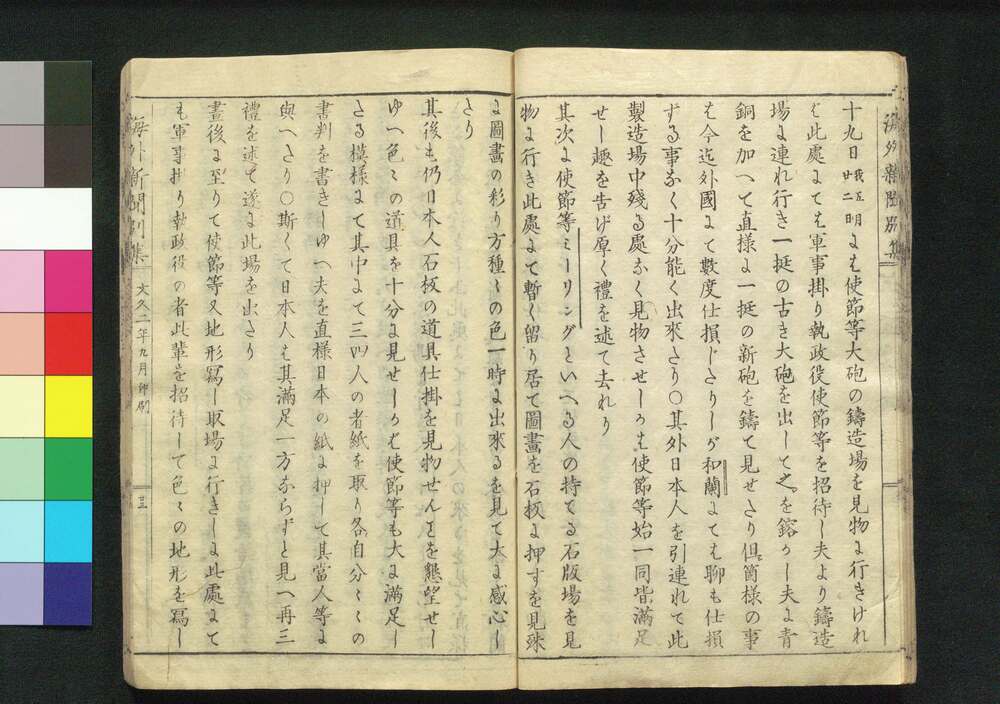 海外新聞別集
十九日我五廿二明よも使節等大砲の鑄造場を見物に行きけれ
は此處よても軍事掛り執政役使節等を招待し夫より鑄造
場に連れ行き一挺の古き大砲を出して之を鎔かし夫に青
銅を加へて直様に一挺の新砲を鑄て見せたり但箇様の事
は今迄外國よて數度仕損じたりしが和蘭よても聊も仕損
ずる事なく十分能く出來たり〇其外日本人を引連れて此
製造場中殘る處なく見物させしかは使節等始一同皆滿足
せし趣を告げ厚く禮を述て去れり
其次に使節等ミーリングといへる人の持てる石版場を見
物に行き此處よて暫く留り居て圖畫を石板に押すを見殊
に圖畫の彩り方種〻の色一時に出來るを見て大に感心し
たり
其後も仍日本人石板の道具仕掛を見物せんとを懇望せし
ゆへ色〻の道具を十分に見せしかは使節等も大に滿足し
たる模様よて其中よて三四人の者紙を取り各自分〻〻の
書判を書きしゆへ夫を直様日本の紙に押して其當人等に
與へたり〇斯くて日本人も其滿足一方ならずと見へ再三
禮を述て遂に此場を出たり
晝後に至りて使節等又地形寫し取場に行きしに此處よて
も軍事掛り執政役の者此輩を招待して色〻の地形を寫し
海外新聞別集
文久二年九月印刷
三